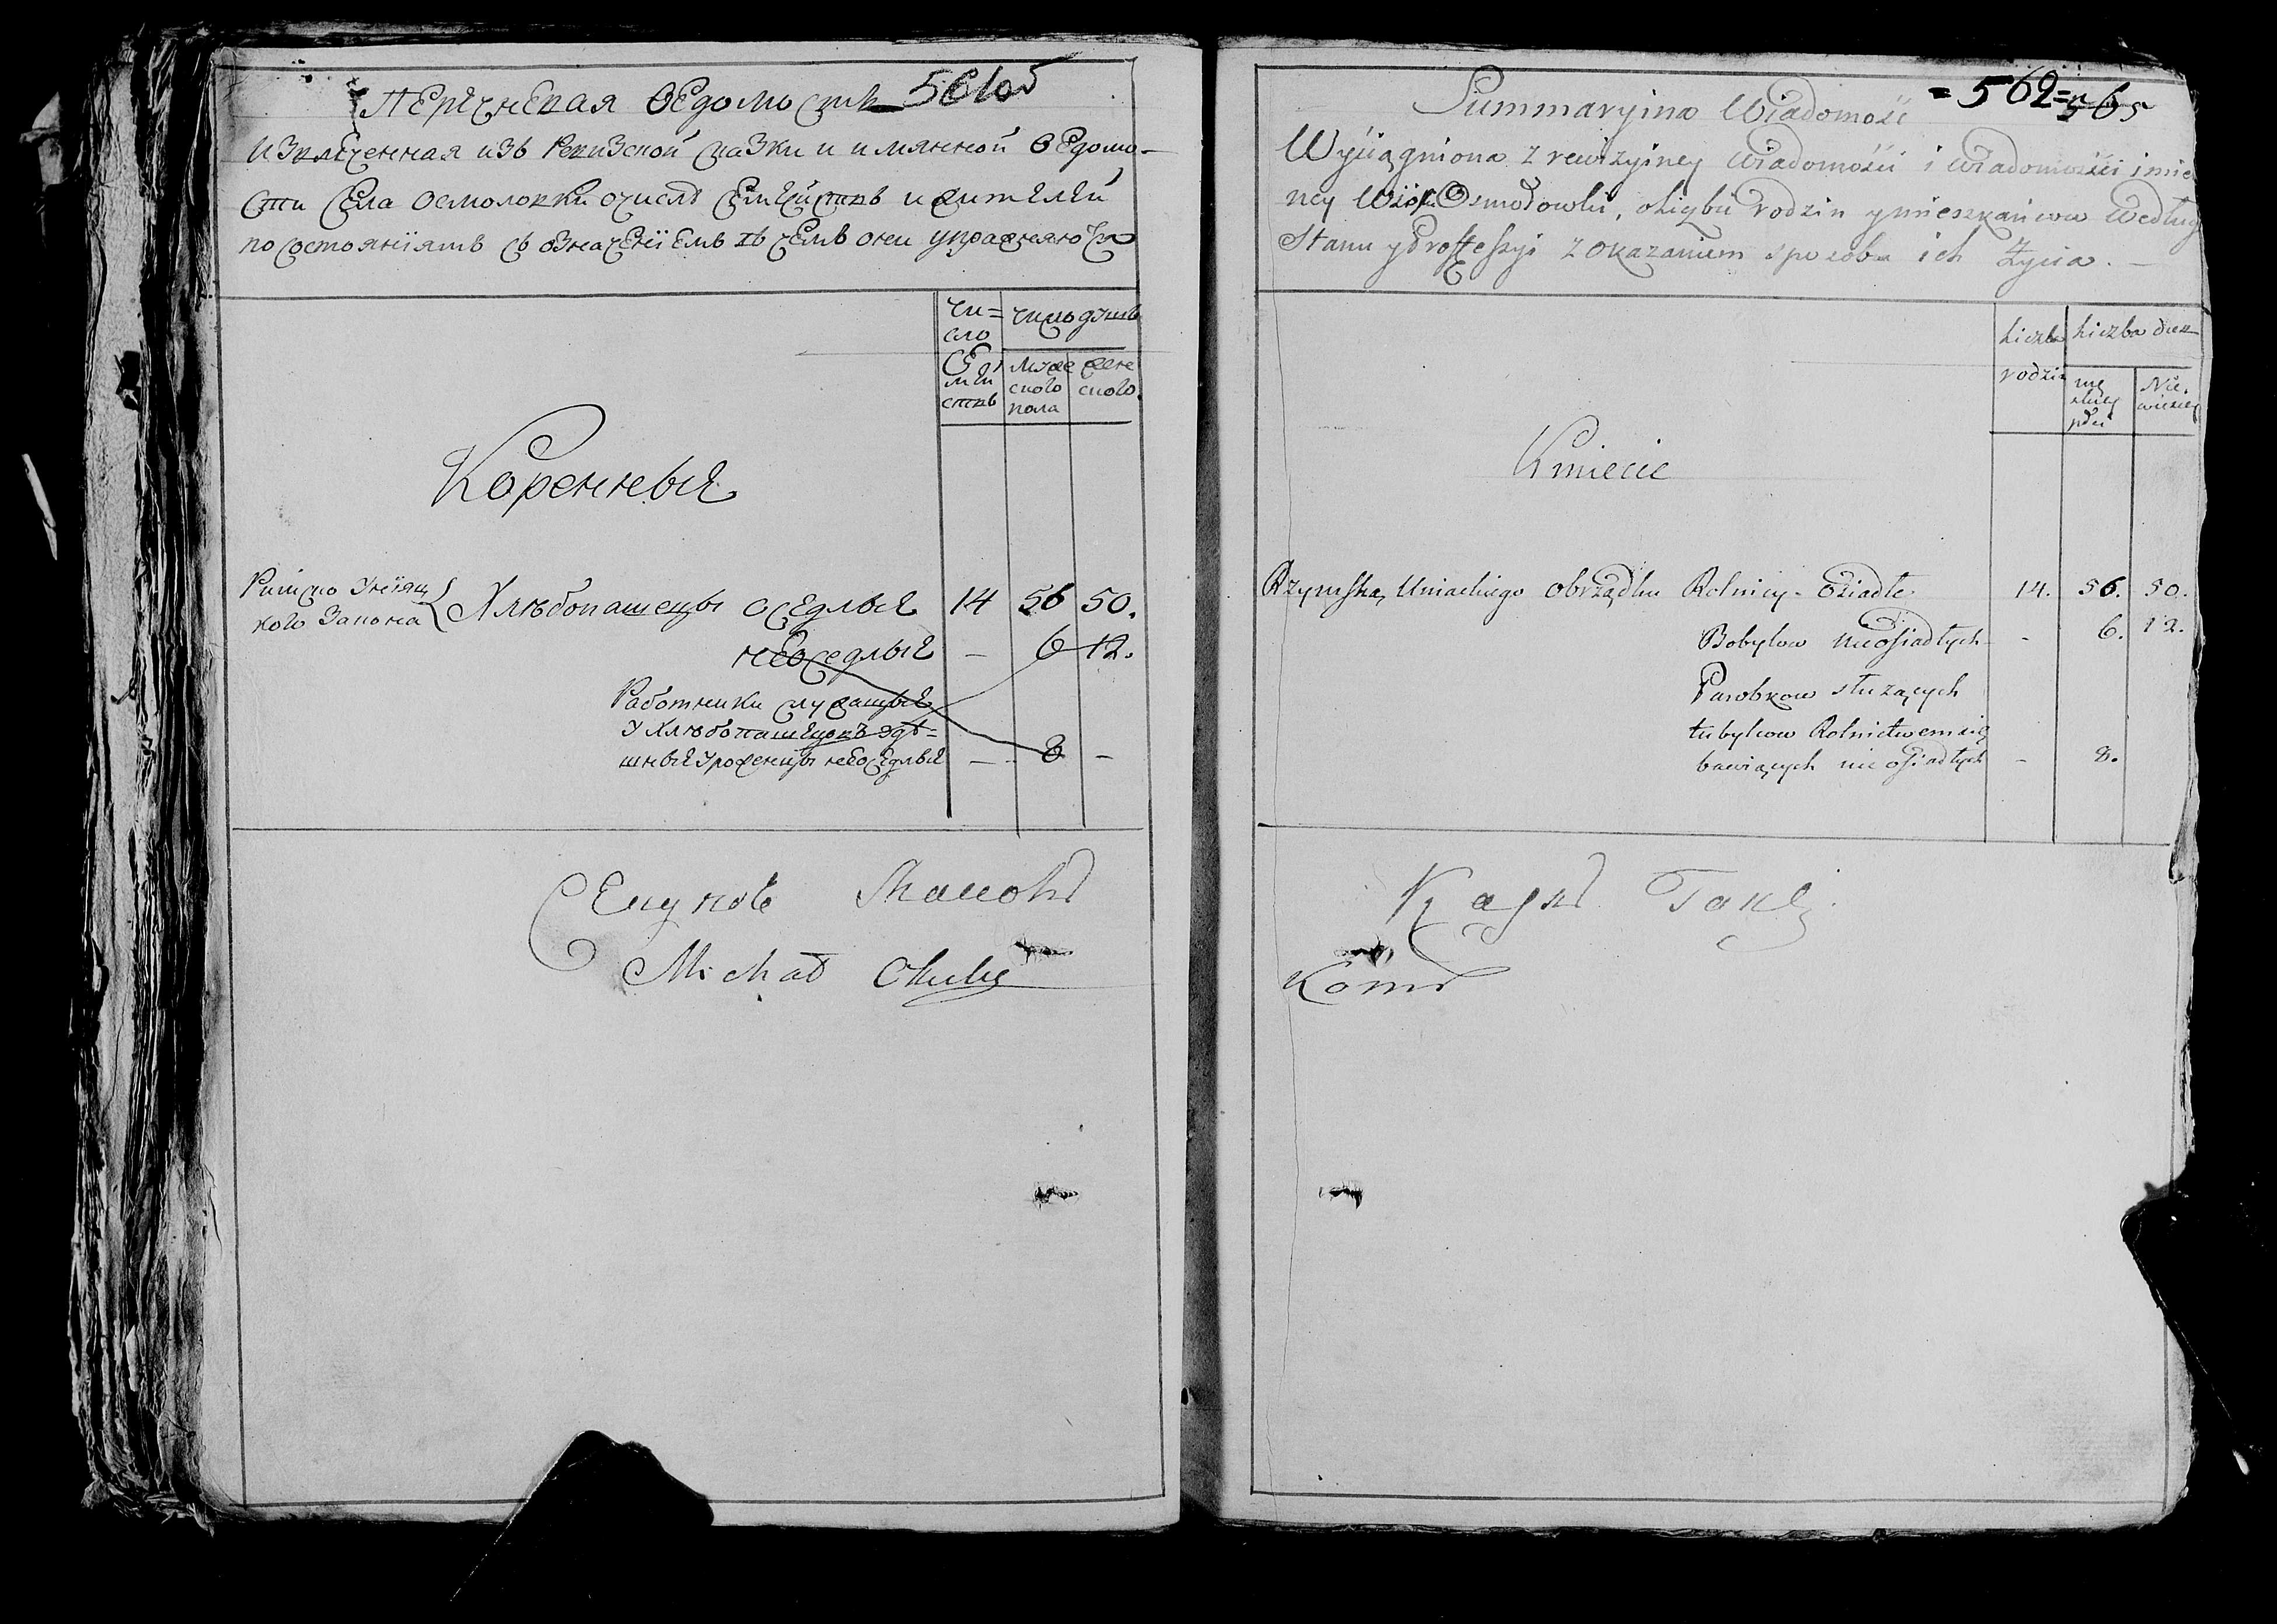 Перечневая ведомость
извлеченная изъ Ревизской сказки и имянной ведомо-
сти Села Осмоловки очислѣ Семействъ и жителей
по состоянїямъ съ означенїемъ въ чемъ они упражняются
чи=
сло
Се
мей
ствъ
число душъ
муже
ского
пола
жене
ского.
Коренныя
Римско Унїяц
кого Закона
Хлѣбопашецы оседлыя 14 56 50.
неоседлыя – 6 12.
Работники служащыя
У Хлѣбопашецовъ здѣ=
шныя Уроженцы неоседлыя – 8 –
Michał
= 562 = 565
Summaryina Wiadomość
Wyciągniona z rewizyiney Wiadomości i Wiadomości imie
ney Wsi Osmołowki, oliczbie rodzin ymieszkańcow Według
Stanu yProffessyi z okazaniem sposobu ich Życia. –
Liczba
rodzin
Liczba dusz
mę
skiey
płci
Nie.
wieściey
Kmiecie
Rzymska, Uniackiego obrządku Rolnicy - Osiadłe 14. 56. 50.
Bobylow nieosiadłych - 6. 12.
Parobkow służących
tubylcow Rolnictwem się
bawiących nieosiadłych - 8.